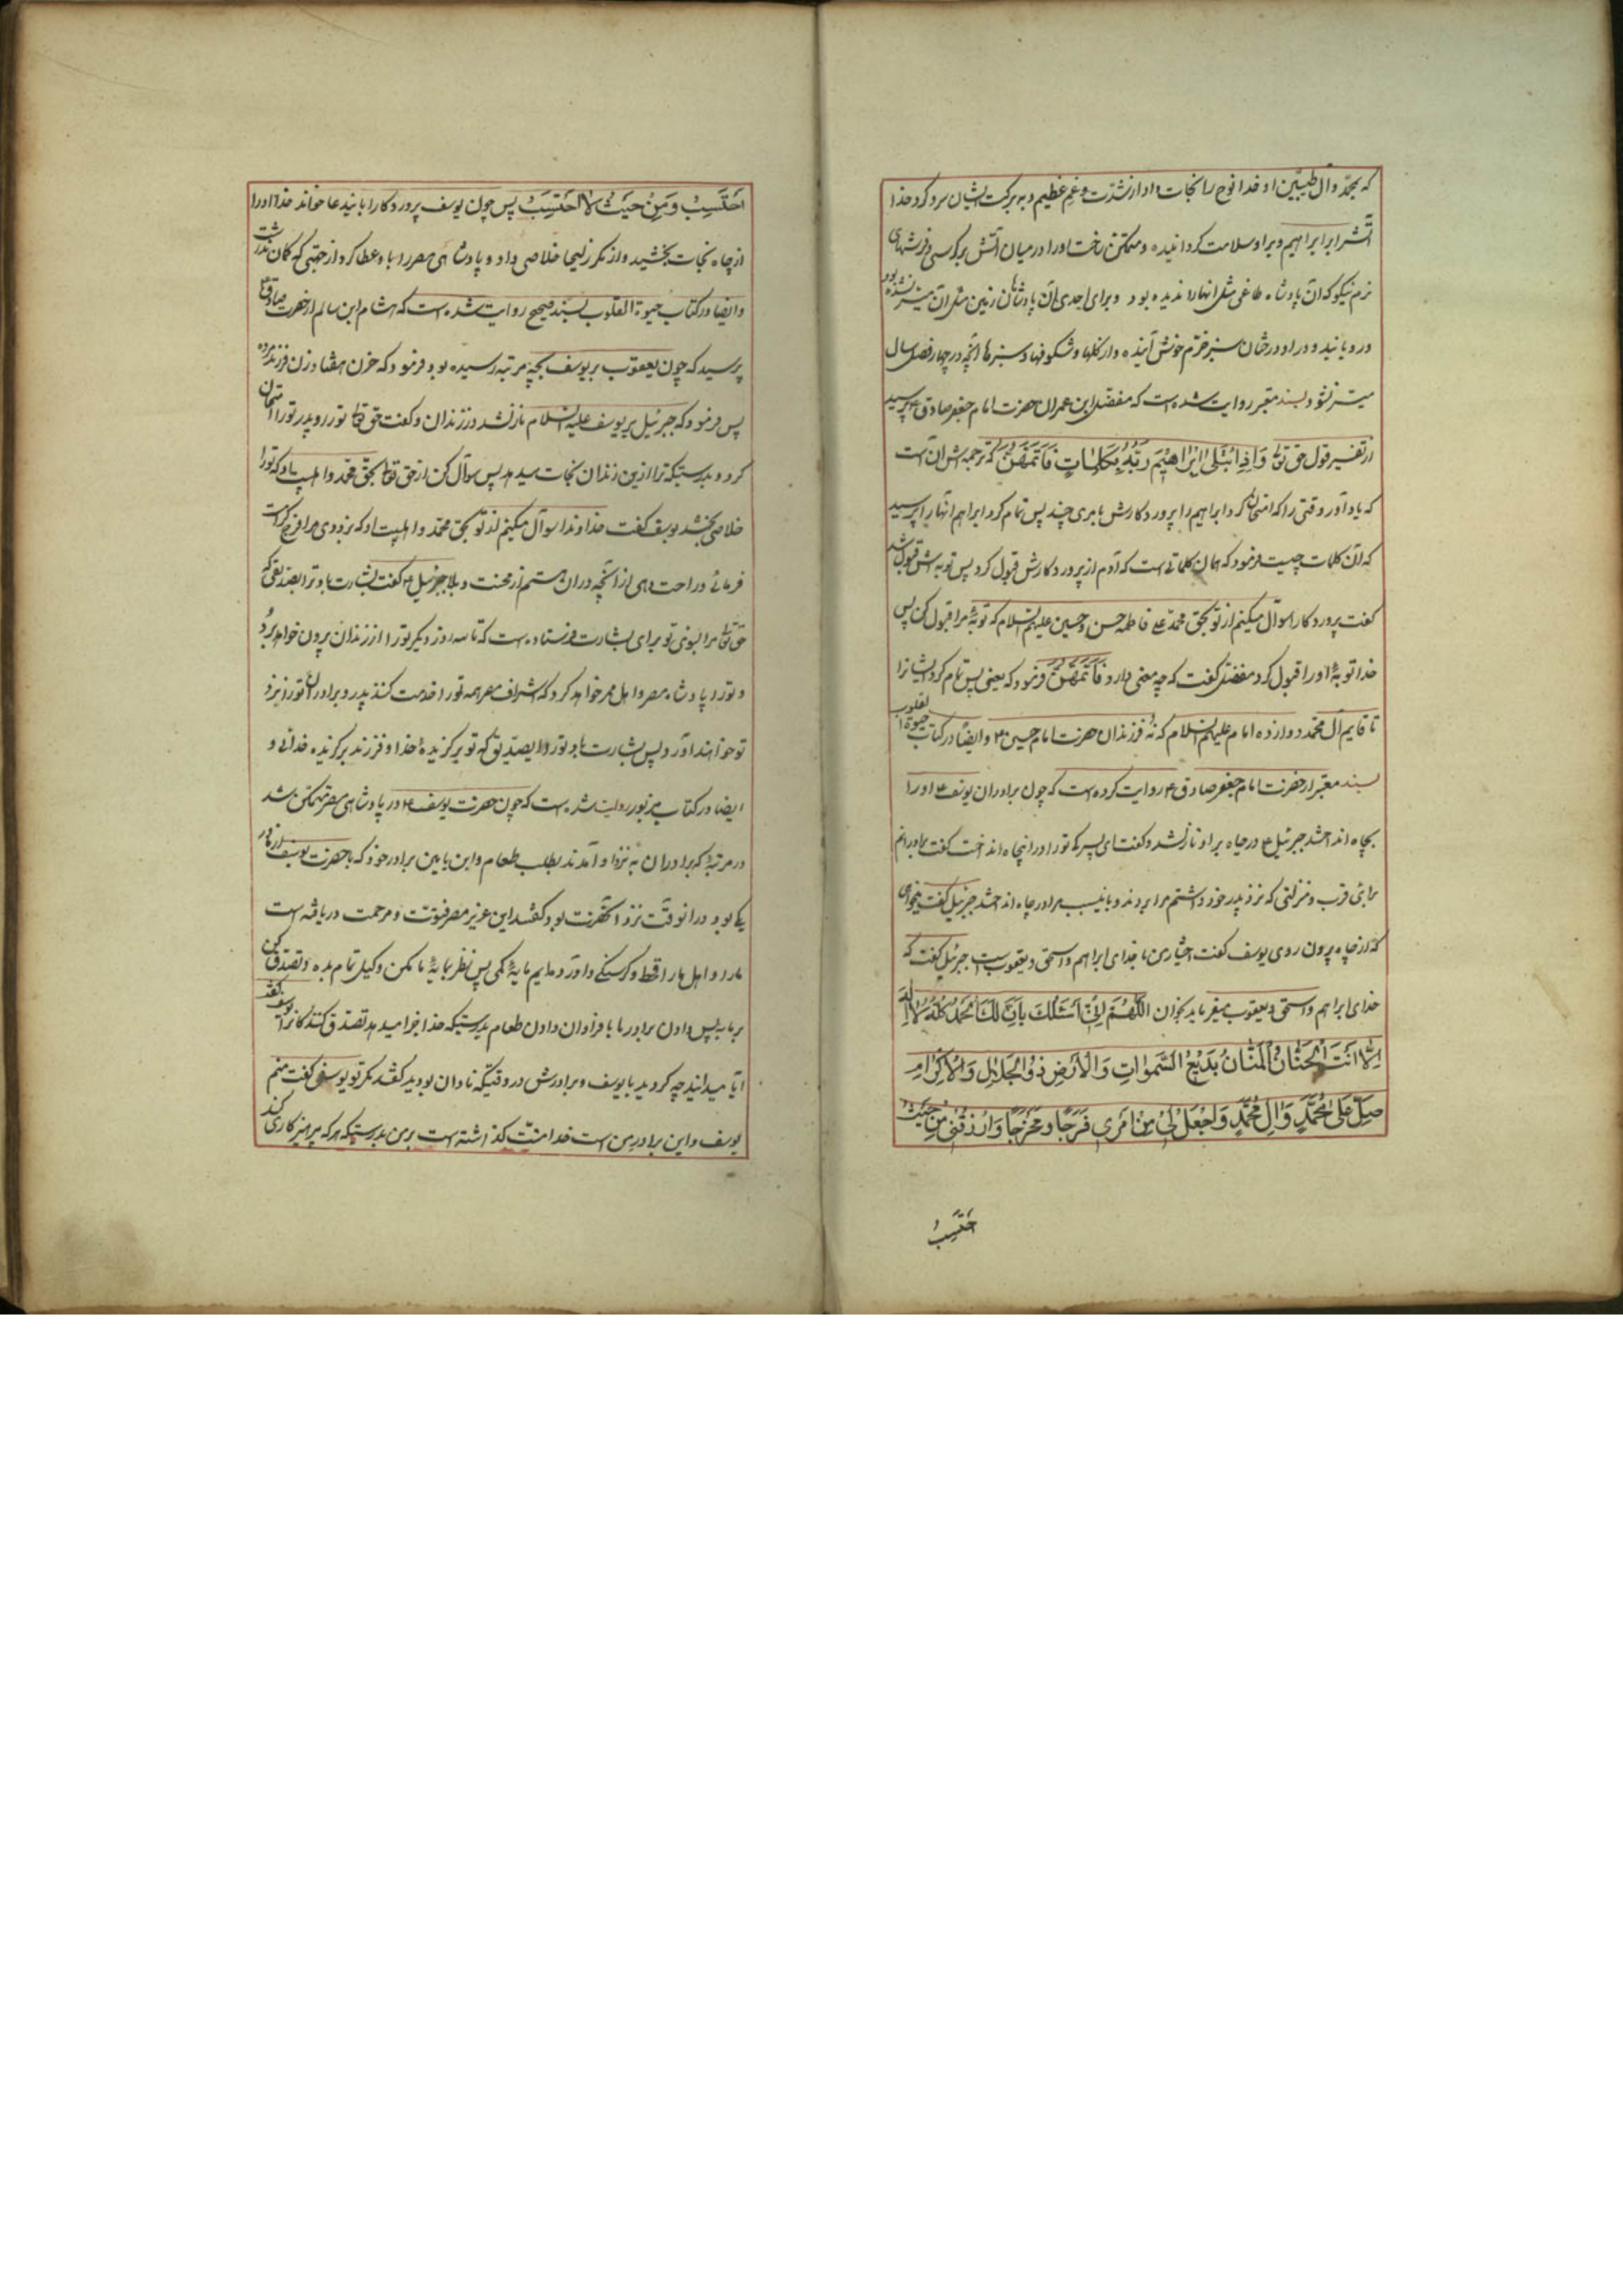 که بمحمّد وآل طیّبین او خدا نوح را نجات داد از شدّت وغم عظیم و به برکت ایشان سرد کرد خدا
آتش را بر ابراهیم وبر او سلامت گردانیده ومتمکّن ساخت او را در میان آتش بر کرسی و فرشهای
نرم نیکو که آن پادشاه طاغی مثل آنها را ندیده بود وبرای احدی از پادشاهان زمین مثل آن میسّر نشده بود
و رویانید و در او درختان سبز خرّم خوش آینده واز گلها وشکوفها وسبزها آنچه در چهار فصل سال
میسّر نشود وبسند معتبر روایت شده است که مفضّل ابن عمر از حضرت امام جعفر صادق ع پرسید
از تفسیر قول حق تعالی وَاِذِ ابْتَلٰی اِبْرٰاهیٖمَ رَبُّهُ بِکَلِمٰاتٍ فَاَتَمَّهُنَّ که ترجمه اش آن است
که یاد آور وقتی را که امتحان کرد ابراهیم را پروردگارش بامری چند پس تمام کرد ابراهیم آنها را پرسید
که آن کلمات چیست فرمود که همان کلماتی است که آدم از پروردگارش قبول کرد پس توبه اش قبول شد
گفت پروردگارا سوآل میکنم از تو بحق محمّد علی فاطمه حسن وحسین علیهم السلام که توبهٔ مرا قبول کن پس
خدا توبهٔ او را قبول کرد مفضّل گفت که چه معنی دارد فَاَتَمَّهُنَّ فرمود که یعنی پس تمام کرد ایشانرا
تا قایم آل محمّد دوازده امام علیهم السلام که نُه فرزندان حضرت امام حسین ع وایضًا در کتاب حیوة القلوب
بسند معتبر از حضرت امام جعفر صادق ع روایت کرده است که چون برادران یوسف ع او را
بچاه انداختند جبرئیل ع در چاه بر او نازل شد وگفت ای پسر که تو را در اینچاه انداخت گفت برادرانم
برای قرب ومنزلتی که نزد پدر خود داشتم مرا بردند وباینسبب مرا در چاه انداختند جبرئیل گفت میخواهی
که از چاه بیرون روی یوسف گفت اختیار من با خدای ابراهیم واسحق ویعقوب است جبرئیل گفت که
خدای ابراهیم واسحق ویعقوب میفرماید بخوان اللّٰهُمَّ اِنّیٖ اَسْئَلُکَ بِاَنَّ لَکَ الْحَمْدُ کُلُّهُ لاٰ اِلٰهَ
اِلّاٰ اَنْتَ الْحَنّٰانُ الْمَنّٰانُ بَدیٖعُ السَّمٰوٰاتِ وَالْاَرْضِ ذُوالْجَلاٰلِ وَالْاِکْرٰامِ
صَلِّ عَلیٰ مُحَمَّدٍ وَّاٰلِ مُحَمَّدٍ وَاجْعَلْ لیٖ مِنْ اَمْریٖ فَرَجًا وَمَخْرَجًا وَارْزُقْنیٖ مِنْ حَیْثُ
اَحْتَسِبُ
اَحْتَسِبُ وَمِنْ حَیْثُ لاٰ اَحْتَسِبُ پس چون یوسف پروردگار را باینّ دعا خواند خدا او را
از چاه نجات بخشید واز مکر زلیخا خلاصی داد و پادشاهی مصر را باو عطا کرد از جهتی که گمان نداشت
وایضا در کتاب حیوة القلوب بسند صحیح روایت شده است که هشام ابن سالم از حضرت صادق ع
پرسید که چون یعقوب بر یوسف بچه مرتبه رسیده بود فرمود که حزن هفتاد زن فرزند مرده
پس فرمود که جبرئیل بر یوسف علیه السلام نازل شد در زندان وگفت حق تعالی تو را و پدر تو را امتحان
کرد وبدرستیکه ترا ازین زندان نجات میدهد پس سوآل کن از حق تعالی بحقّ محمّد واهلبیت او که تو را
خلاصی بخشد یوسف گفت خداوندا سوآل میکنم از تو بحق محمّد واهلبیت او که بزودی مرا فرج کرامت
فرمائی وراحت دهی از آنچه در آن هستم از محنت وبلا جبرئیل ع گفت بشارت باد ترا ای صدّیق که
حق تعالی مرا بسوی تو برای بشارت فرستاده است که تا سه روز دیگر تو را از زندان بیرون خواهد برد
وتو را پادشاه مصر واهل مصر خواهد کرد که اشراف مصر همه تو را خدمت کنند پدر وبرادران تو را نزد
تو خواهند آورد پس بشارت باد تو را ای صدّیق که تو برگزیدهٔ خدا وفرزند برگزیده خدائی و
ایضا در کتاب مزبور روایت شده است که چون حضرت یوسف ع در پادشاهی مصر متمکّن شد
در مرتبهٔ که برادران به نزد او آمدند بطلب طعام وابن یامین برادر خود که با حضرت یوسف از مادر
یکی بود در آنوقت نزد آنحضرت بود گفتند این عزیز مصر فتوّت ومرحمت دریافته است
ما را و اهل ما را قحط وگرسنگی وآورده ایم مایهٔ کمی پس نظر بمایهٔ ما مکن وکیل تمام بده وتصدّق کن
بر ما به پس دادن برادر ما یا فراوان دادن طعام بدرستیکه خدا جزا میدهد تصدّق کنندگانرا یوسف گفت
آیا میدانید چه کردید با یوسف وبرادرش در وقتیکه نادان بودید گفتند مگر تو یوسفی گفت منم
یوسف واین برادر من است خدا منّت گذاشته است بر من بدرستیکه هر که پرهیزکاری کند